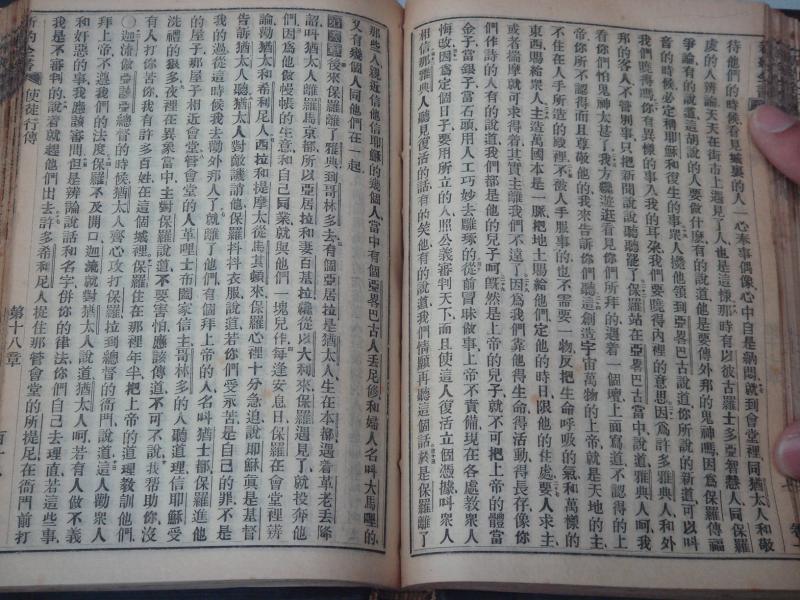 待他們的時候看見城裏的人一心奉事偶像心中自是納悶就到會堂裡同猶太人和敬
虔的人辨論天天在街市上遇見了人也是這樣那時有以彼古羅士多亞智慧人同保羅
爭論有的說道這胡說的人要做什麼有的說道他是要傳外邦的鬼神嗎因爲保羅傳福
音的時候必定稱耶穌和復生的事衆人攙他領到亞畧巴古說道你所說的新道可以叫
我們曉得嗎你有異樣的事入我的耳朶我們要曉得內裡的意思因爲許多雅典人和外
邦的客人不管別事只把新聞說說聽聽罷了保羅站在亞畧巴古當中說道雅典人呵我
看你們怕鬼神太甚了我方纔遊逛看見你們所拜的還看着一個壇上面寫道不認得的上
帝你所不認得而且尊敬他的我來告訴你們聽這創造宇宙萬物的上帝就是天地的主
不住在人手所造的殿裡不被人手服事的也不需要一物反把生命呼吸的氣和萬樣的
東西賜給衆人主造萬國本是一脈把地土賜給他們定他的時日限他的住處要人求主
或者揣摩就可求得着其實主離我們不遠了因爲我們靠他得生命得活動得長存像你
們作詩的人有的說道我們都是他的兒子呵旣然是上帝的兒子就不可把上帝的體當
金子當銀子當石頭用人工巧妙去雕琢的從前冒昧做事上帝不責備現在各處教衆人
悔改因爲定個日子要用所立的人照公義審判天下而且使這人復活立個憑據叫衆人
相信那雅典人聽見復活的話有的笑他有的說道我們情願再聽這個話於是保羅離了
那些人親近信他信耶穌的幾個人當中有個亞畧巴古人丟尼修和婦人名叫大馬哩的
又有幾個人同他們在一起
後來保羅離了雅典到哥林多去有個亞居拉是猶太人生在本都遇着革老丟降
詔叫猶太人離羅馬京都所以亞居拉和妻百基拉纔從以大利來保羅遇見了就投奔他
們因爲他做幔帳的生意和自己同業就與他們一塊兒作每逢安息日保羅在會堂裡辨
論勸猶太人和希利尼人西拉和提摩太從馬其頓來保羅心裡十分急迫說耶穌眞是基督
告訴猶太人聽猶太人對敵譏誚他保羅抖抖衣服說道若你們受永苦是自己的罪不是
我的過從這時候我去勸外邦人了就離了他們有個拜上帝的人名叫猶士都保羅進他
的屋子那屋子相近會堂管會堂的人革哩士布闔家信主哥林多的人聽道理信耶穌受
洗禮的狠多夜裡在異象當中主對保羅說道不要害怕應該傳道不可不說我幫助你沒
有人打你苦你我有許多百姓在這個城裡保羅住在那裡年半把上帝的道理教訓他們
○迦流做亞該亞總督的時候猶太人齊心攻打保羅拉到總督的衙門說道這人勸衆人
拜上帝不遵我們的法度保羅不及開口迦流就對猶太人說道猶太人呵若有人做不義
和奸惡的事我所應該審問但是辨論說話和名字併你的律法你們自己去理直若這些事
我是不審判的說着就趕他們出去許多希利尼人捉住那管會堂的所提尼在衙門前打
新約全書 使徒行傳 第十八章